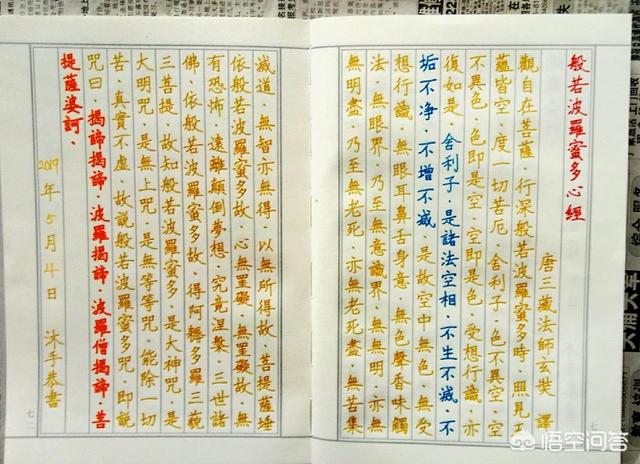 般若波羅蜜多心經
唐三藏法師玄奘 譯
觀自在菩薩·行深般若波羅蜜多時·照見五
蘊皆空·度一切苦厄·舍利子·色不異空·空
不異色·色即是空·空即是色·受想行識·亦
復如是·舍利子·是諸法空相·不生不滅·不
垢不净·不增不減·是故空中無色·無受
想行識·無眼耳鼻舌身意·無色聲香味觸
法·無眼界·乃至無意識界·無無明·亦無
無明盡·乃至無老死·亦無老死盡·無苦集
滅道·無智亦無得·以無所得故·菩提薩埵
依般若波羅蜜多故·心無罣礙·無罣礙故·無
有恐怖·遠離顛倒夢想·究竟涅槃·三世諸
佛·依般若波羅蜜多故·得阿耨多羅三藐
三菩提·故知般若波羅蜜多·是大神咒·是
大明咒·是無上咒·是無等等咒·能除一切
苦·真實不虛·故說般若波羅蜜多咒·即說
咒曰·揭諦揭諦·波羅揭諦·波羅僧揭諦·菩
提薩婆訶·
2019年5月4日 沐手恭書
七二
悟空问答